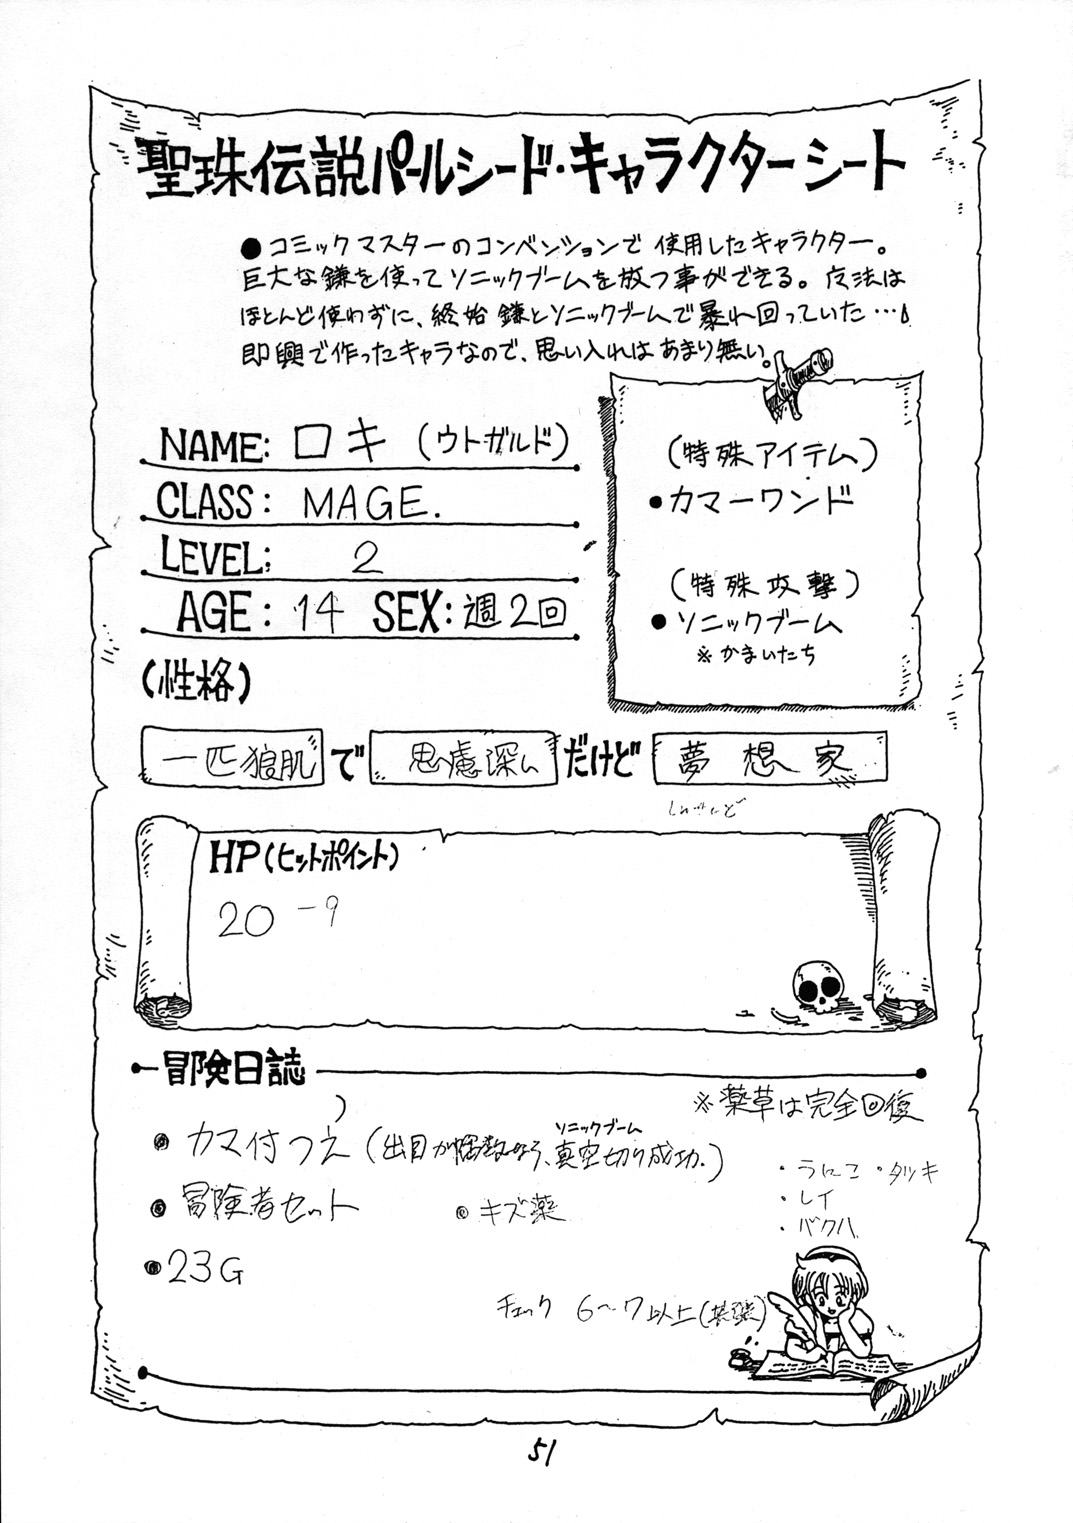 聖珠伝説パールシード・キャラクターシート
●コミックマスターのコンベンションで使用したキャラクター。
巨大な鎌を使ってソニックブームを放つ事ができる。魔法は
ほとんど使わずに、終始鎌とソニックブームで暴れ回っていた…
即興で作ったキャラなので、思い入れはあまり無い。
NAME: ロキ (ウトガルド)
CLASS: MAGE.
LEVEL: 2
AGE: 14 SEX: 週2回
(特殊アイテム)
●カマーワンド
(特殊攻撃)
●ソニックブーム
※かまいたち
(性格)
一匹狼肌 で 思慮深い だけど 夢想家
HP(ヒットポイント)
20 -9
冒険日誌
※薬草は完全回復
●カマ付つえ(出目が偶数なら、真空切り成功.)
ソニックブーム
●冒険者セット ●キズ薬
●23G
・うにこ ・タツキ
・レイ
・バクハ
チェック 6〜7以上
51